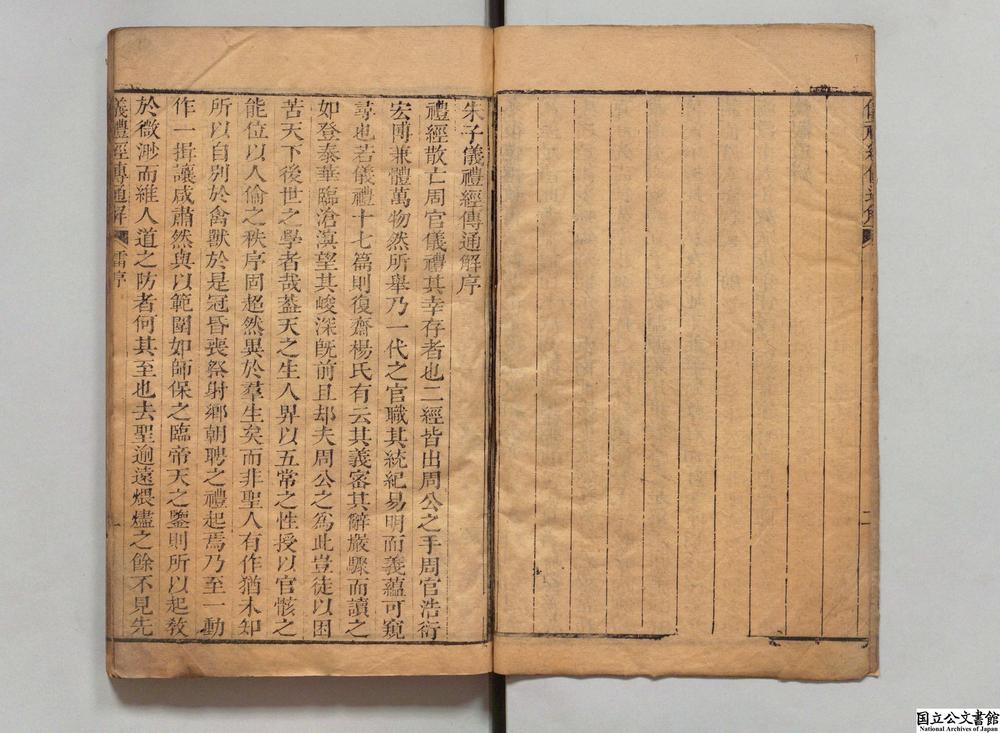 朱子儀禮經傳通解序
禮經散亡周官儀禮其幸存者也二經皆出周公之手周官浩衍
宏博兼體萬物然所舉乃一代之官職其統紀易明而義蘊可窺
尋也若儀禮十七篇則復齋楊氏有云其義審其辭嚴驟而讀之
如登泰華臨滄溟望其峻深旣前且却夫周公之爲此豈徒以困
苦天下後世之學者哉葢天之生人畀以五常之性授以官骸之
能位以人倫之秩序固超然異於羣生矣而非聖人有作猶未知
所以自別於禽獸於是冠昏喪祭射鄉朝聘之禮起焉乃至一動
作一揖讓咸肅然與以範圍如師保之臨帝天之鑒則所以起敎
於微渺而維人道之防者何其至也去聖逾遠煨燼之餘不見先
儀禮經傳通解
序
一
二
国立公文書館
National Archives of Japan